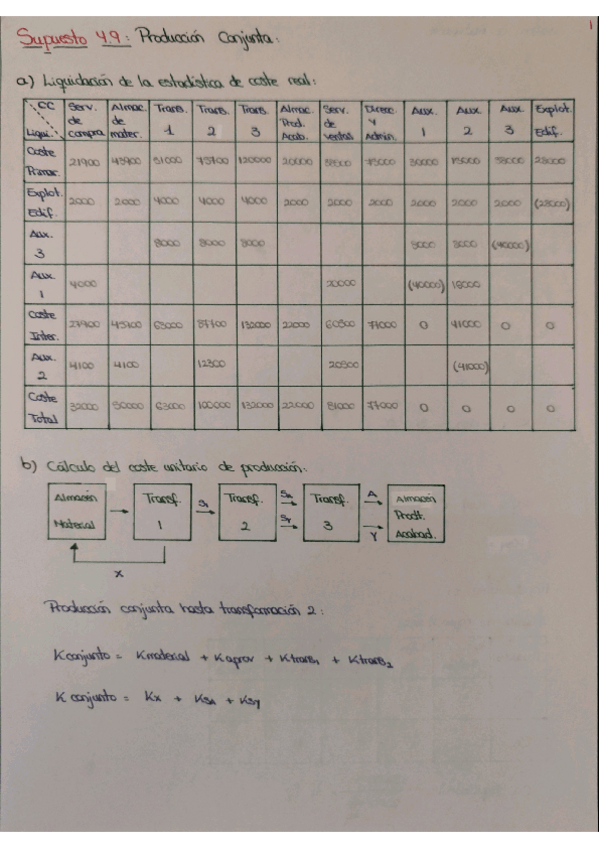 1
Supuesto 4.9: Producción Conjunta:
a) Liquidación de la estadística de coste real:
CC Liqui. | Serv. de compra | Almac. de mater. | Trans. 1 | Trans. 2 | Trans. 3 | Almac. Prod. Acab. | Serv. de ventas | Direcc. y Admin. | Aux. 1 | Aux. 2 | Aux. 3 | Explot. Edif.
Coste Primar. | 21900 | 43900 | 51000 | 75700 | 120000 | 20000 | 38500 | 75000 | 30000 | 15000 | 38000 | 28000
Explot. Edif. | 2000 | 2000 | 4000 | 4000 | 4000 | 2000 | 2000 | 2000 | 2000 | 2000 | 2000 | (28000)
Aux. 3 | 8000 | 8000 | 8000 | 8000 | 8000 | (40000)
Aux. 1 | 4000 | 20000 | (40000) | 16000
Coste Inter. | 27900 | 45900 | 63000 | 87700 | 132000 | 22000 | 60500 | 77000 | 0 | 41000 | 0 | 0
Aux. 2 | 4100 | 4100 | 12300 | 20500 | (41000)
Coste Total | 32000 | 50000 | 63000 | 100000 | 132000 | 22000 | 81000 | 77000 | 0 | 0 | 0 | 0
b) Cálculo del coste unitario de producción:
Almacén Material
Transf. 1
S1
Transf. 2
SA
SY
Transf. 3
A
Y
Almacén Prodt. Acabad.
X
Producción conjunta hasta transformación 2:
Kconjunto = Kmaterial + Kaprov + Ktrans1 + Ktrans2
K conjunto = Kx + KSA + KSY